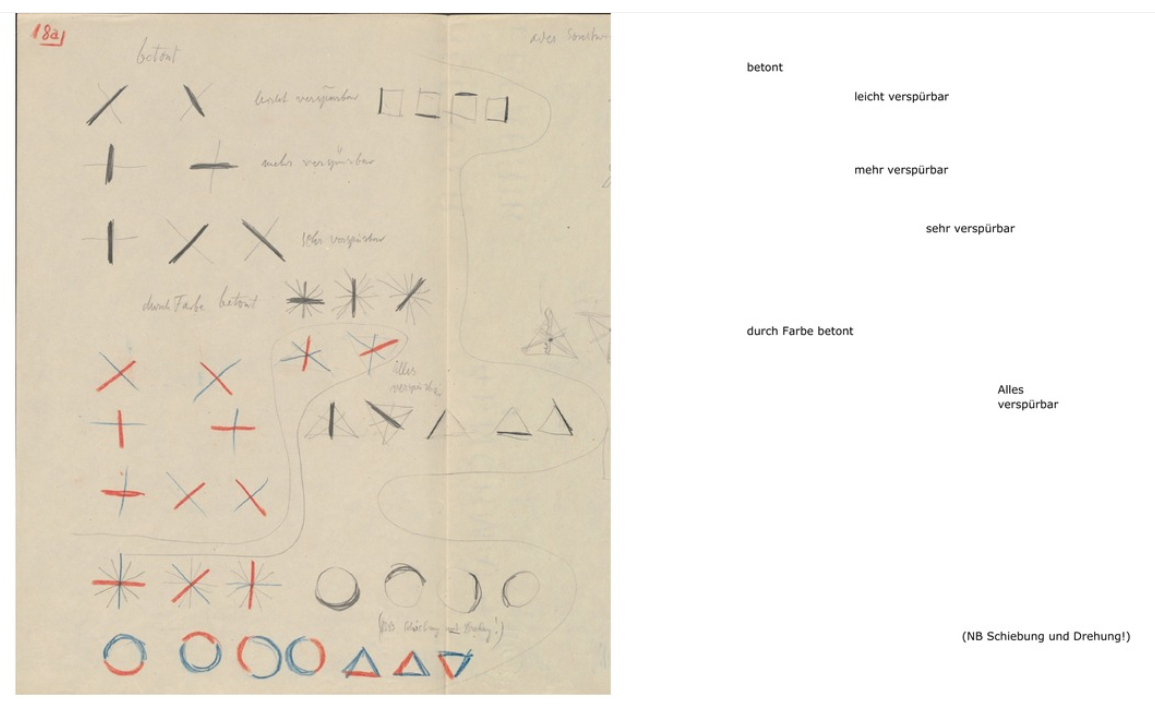 18a
betont
oder
leicht verspürbar
mehr verspürbar
sehr verspürbar
durch Farbe betont
Alles
verspürbar
(NB Schiebung und Drehung!)
betont
leicht verspürbar
mehr verspürbar
sehr verspürbar
durch Farbe betont
Alles
verspürbar
(NB Schiebung und Drehung!)